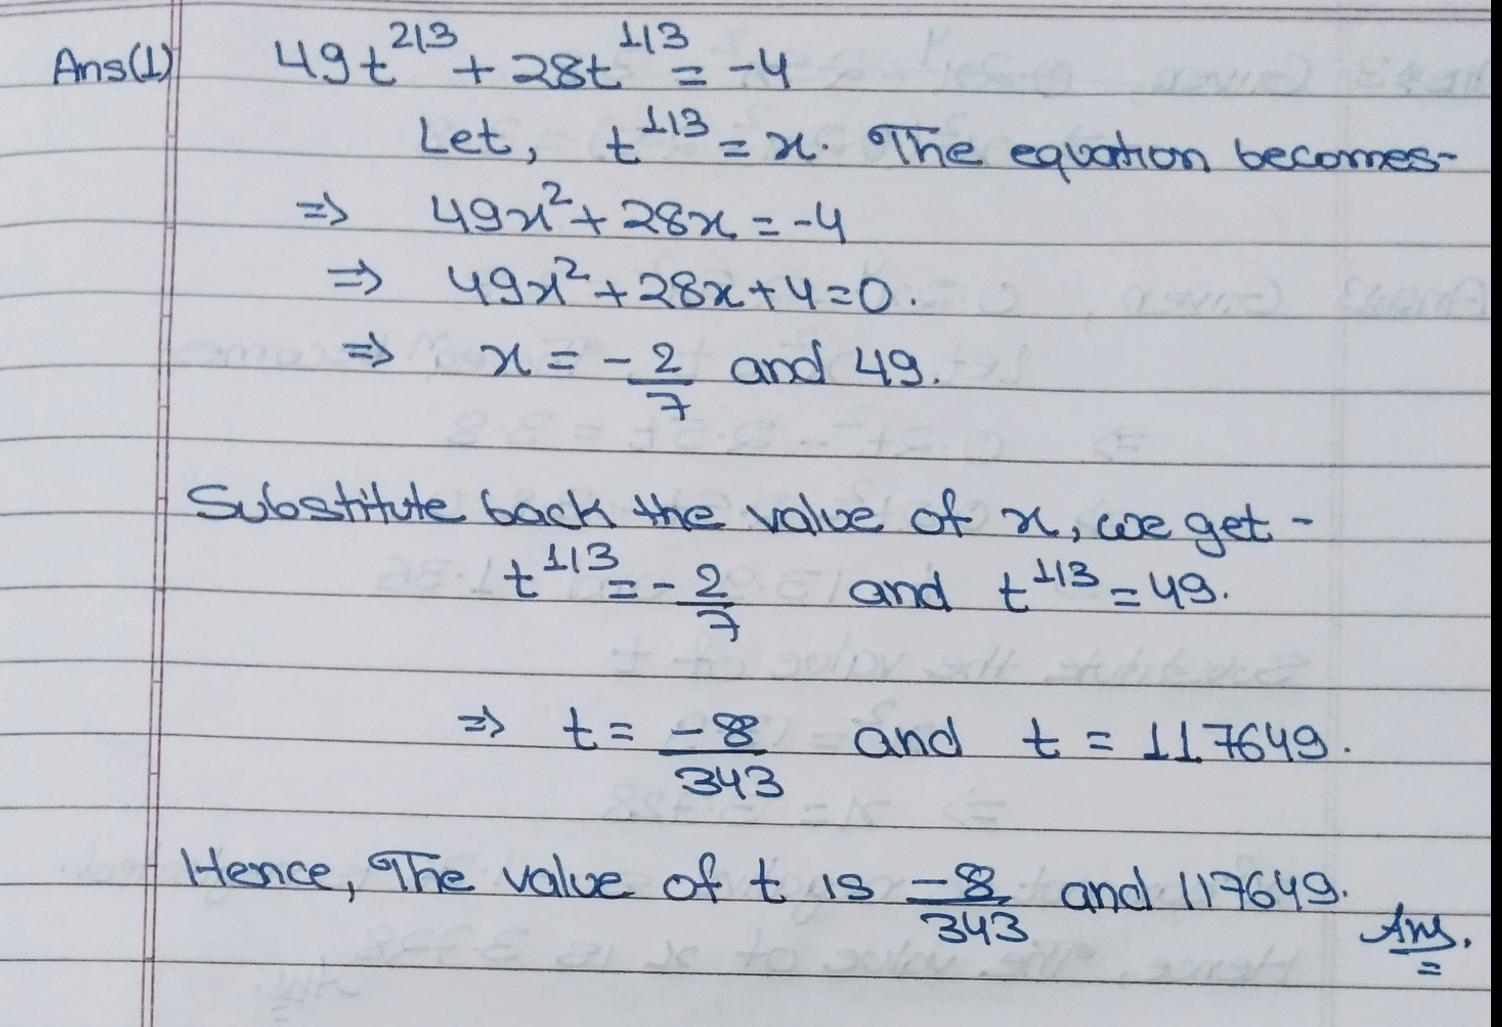 Ans(1) 49t^2/3 + 28t^1/3 = -4
Let, t^1/3 = x. The equation becomes-
=> 49x² + 28x = -4
=> 49x² + 28x + 4 = 0.
=> x = -2/7 and 49.
Substitute back the value of x, we get -
t^1/3 = -2/7 and t^1/3 = 49.
=> t = -8/343 and t = 117649.
Hence, The value of t is -8/343 and 117649.
Ans.